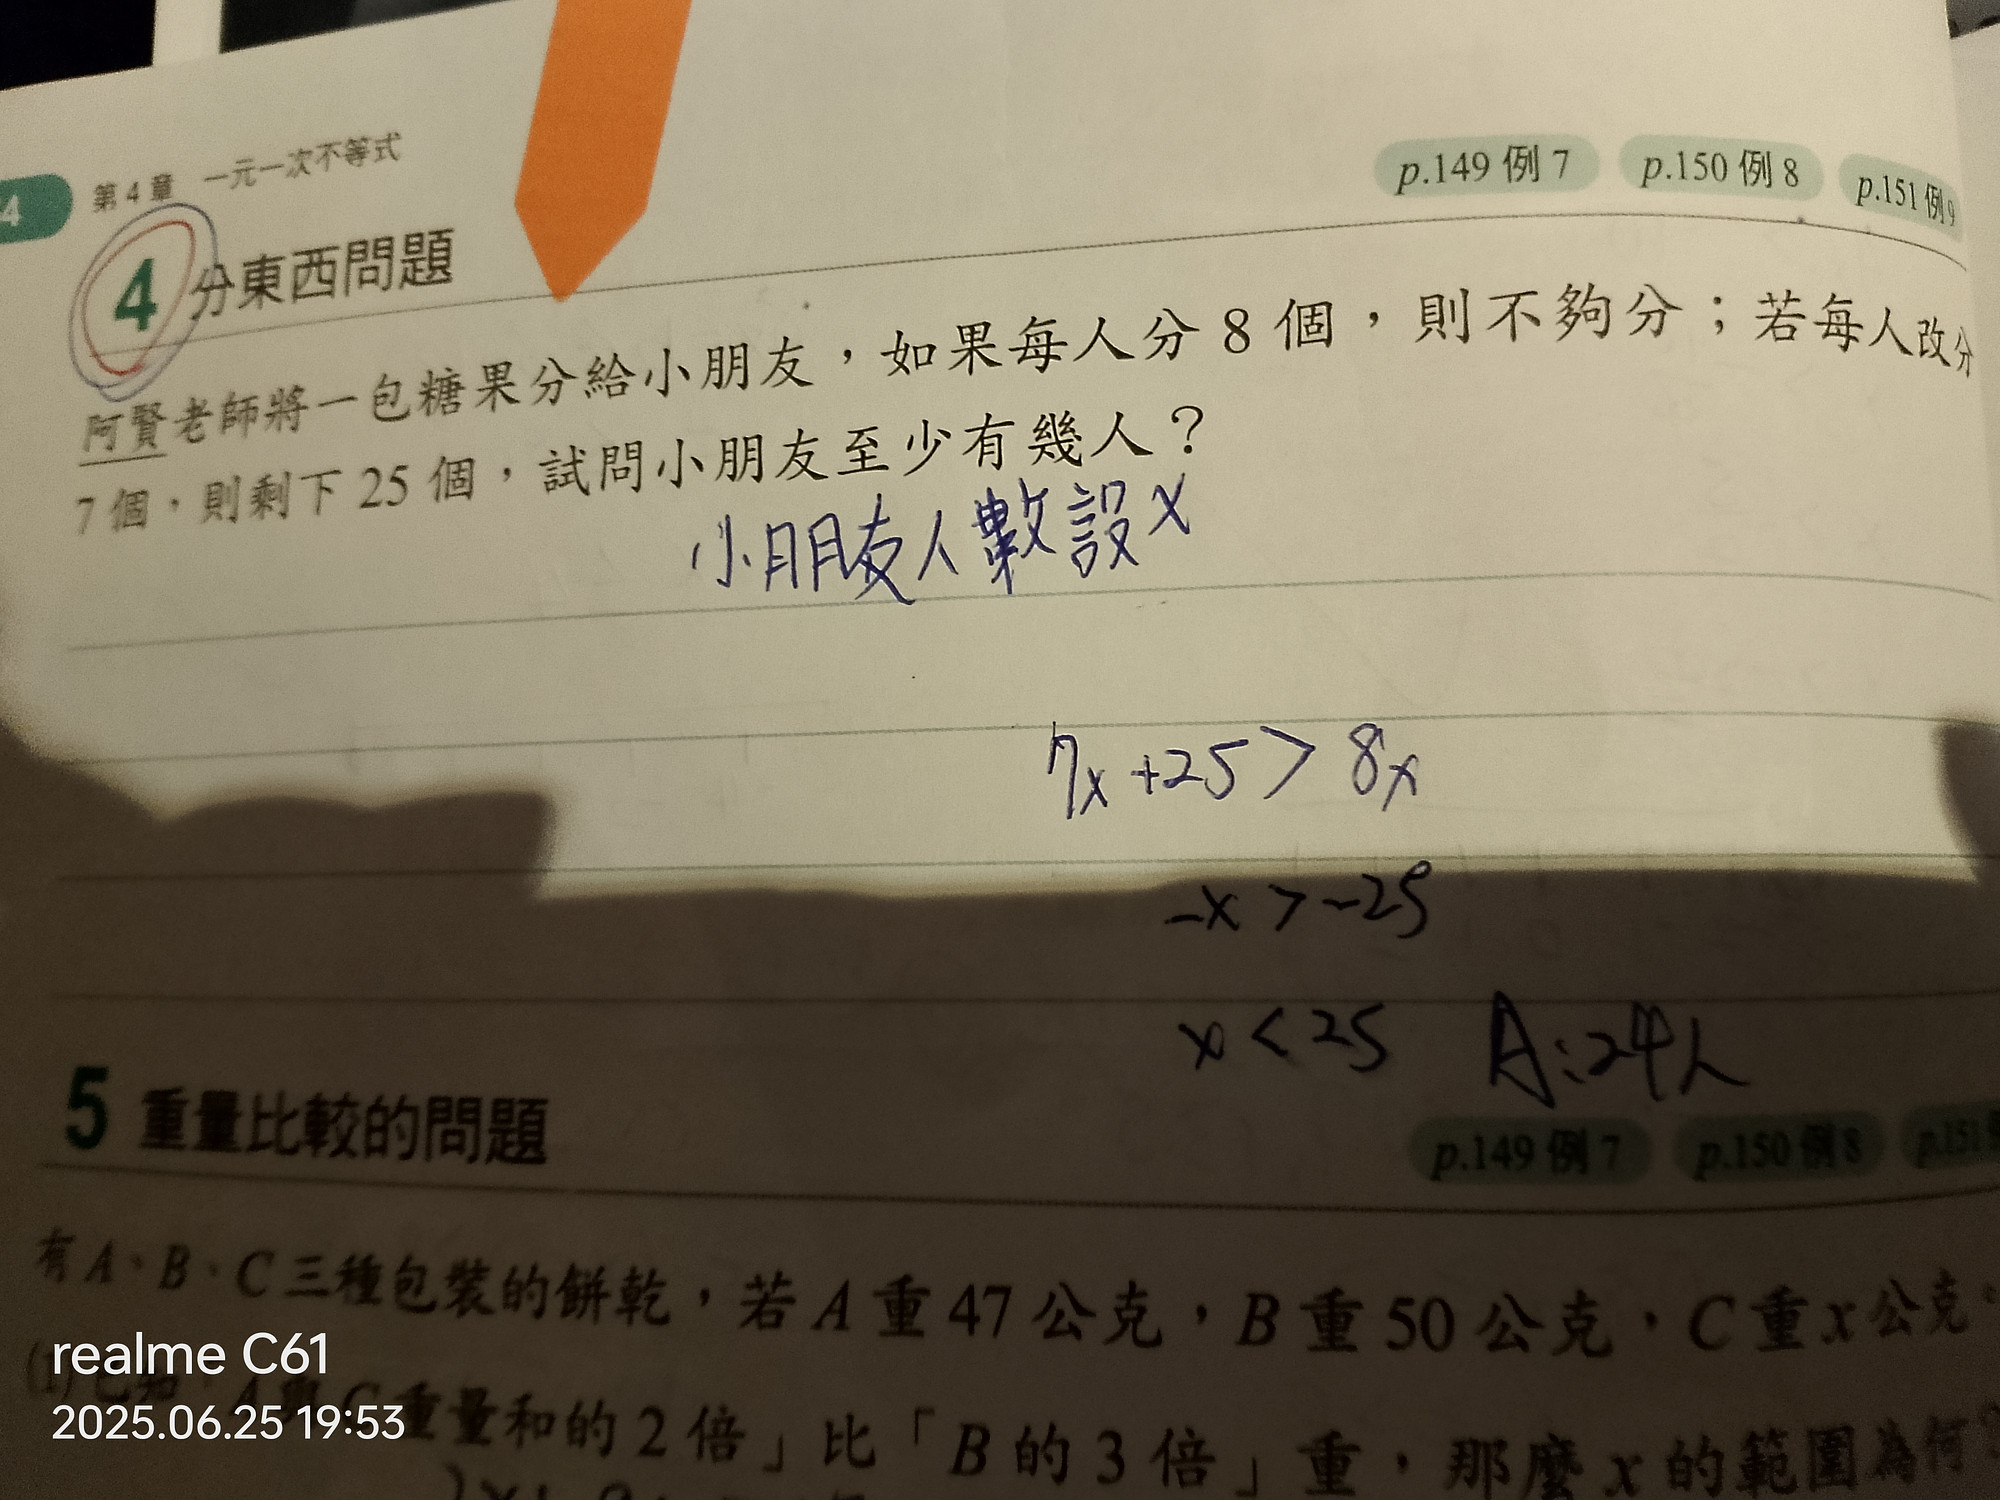 4
第4章 一元一次不等式
p.149 例 7 p.150 例 8 p.151 例 9
4 分東西問題
阿賢老師將一包糖果分給小朋友，如果每人分 8 個，則不夠分；若每人改分
7 個，則剩下 25 個，試問小朋友至少有幾人？
小朋友人數設x
7x+25>8x
-x>-25
x<25 A:24人
5 重量比較的問題
p.149 例 7 p.150 例 8 p.151
有 A、B、C 三種包裝的餅乾，若 A 重 47 公克，B 重 50 公克，C 重 x 公克。
(1) 重量和的 2 倍」比「B 的 3 倍」重，那麼 x 的範圍為何？
realme C61
2025.06.25 19:53